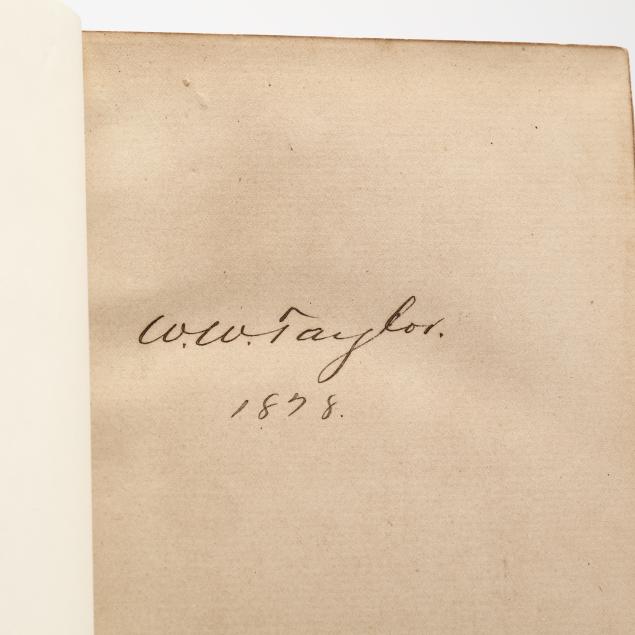 W. W. Taylor.
1878.